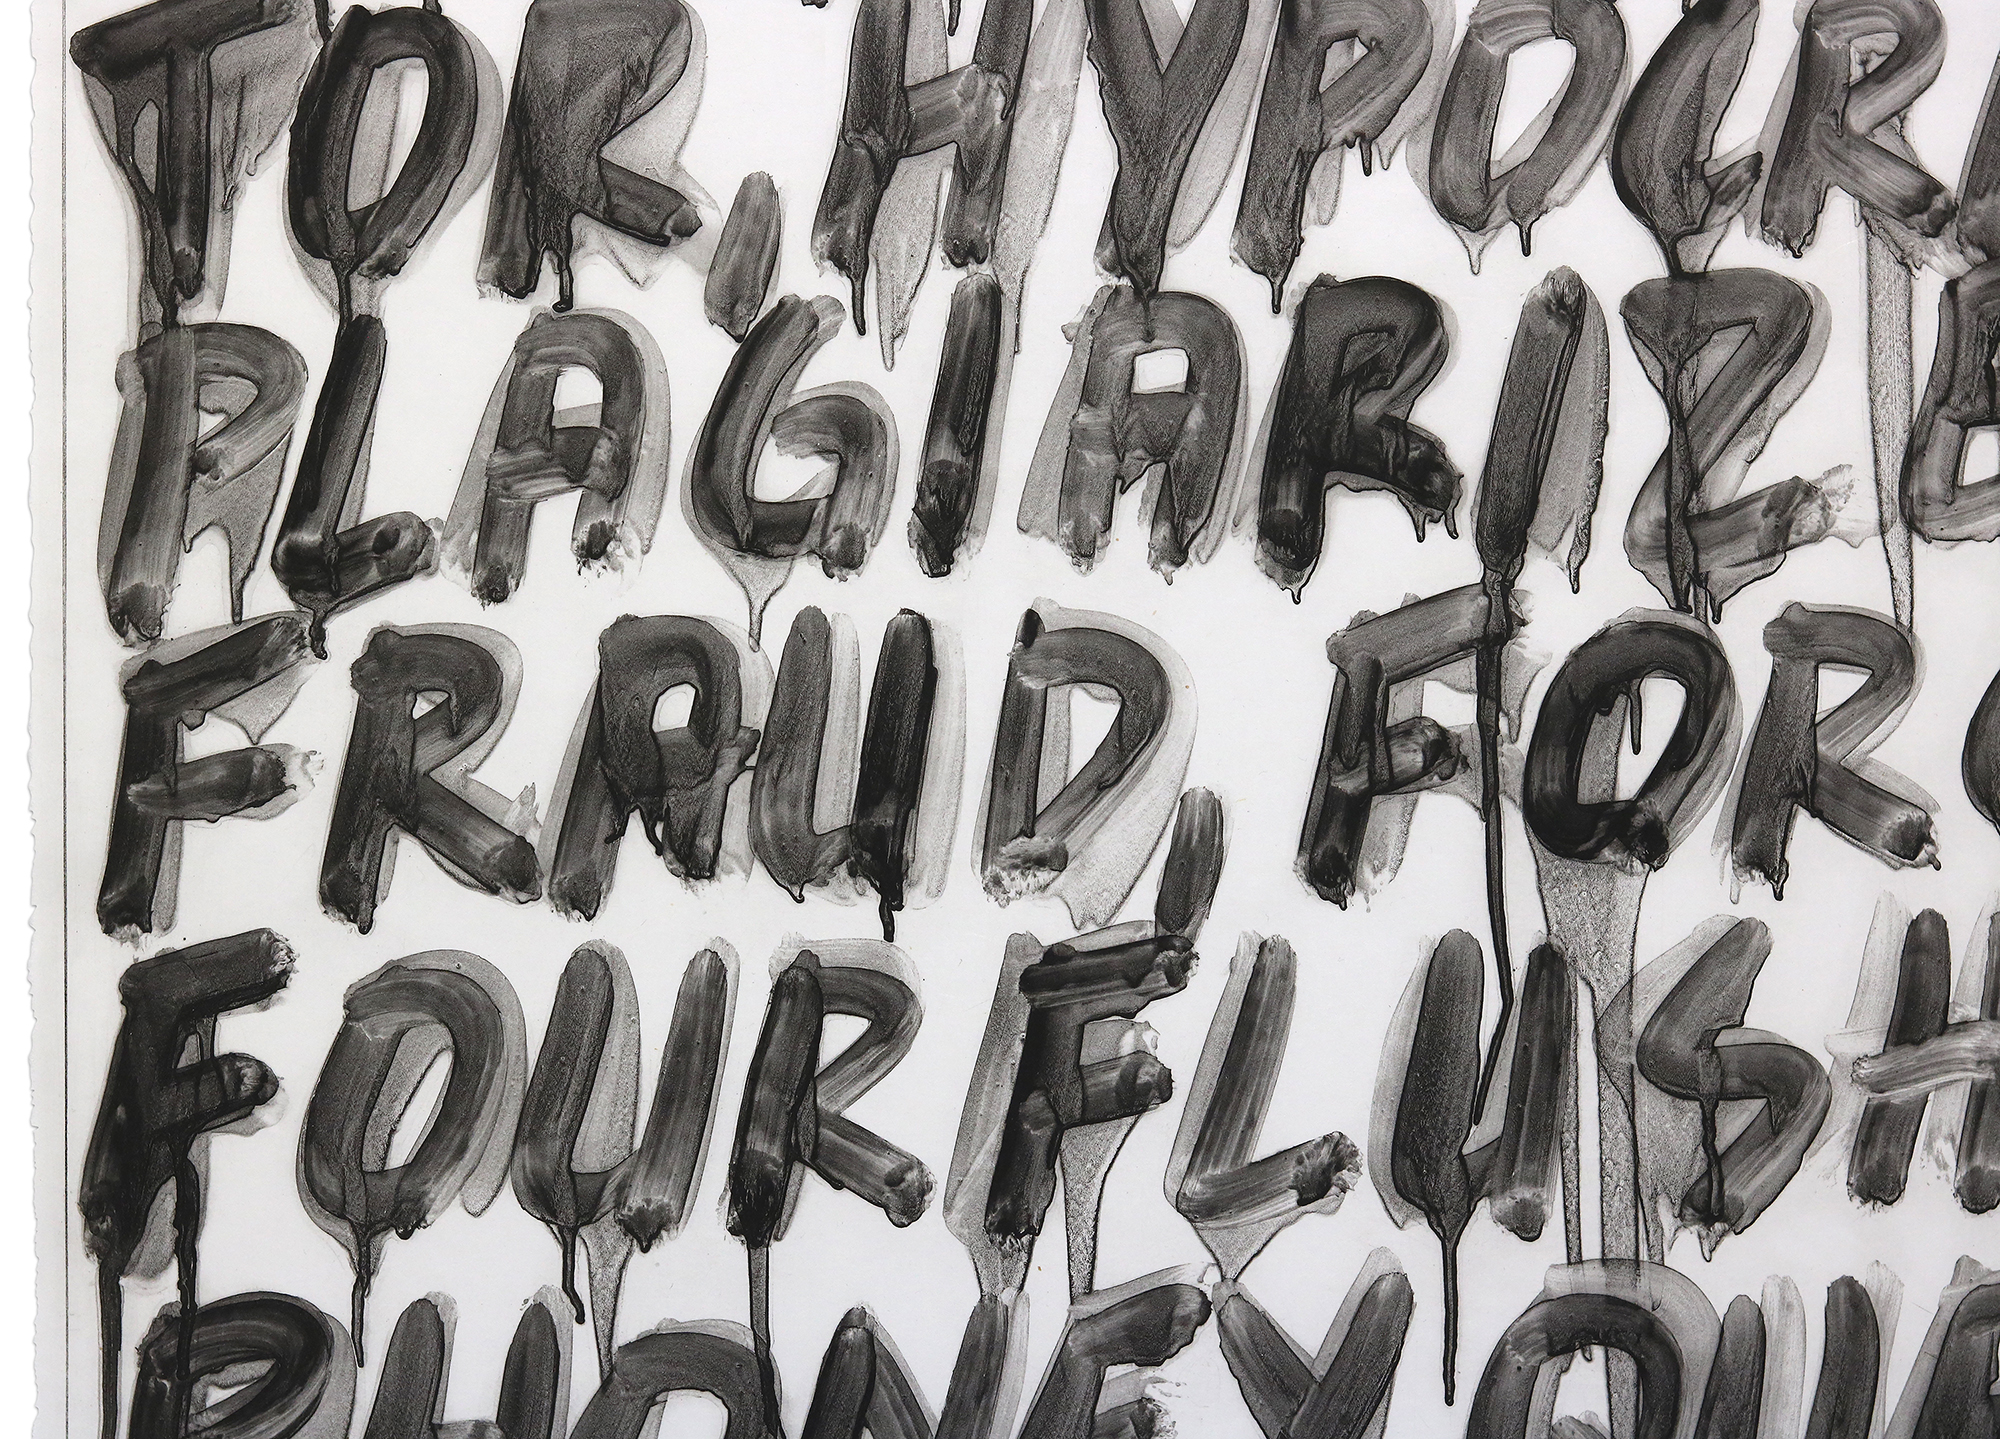 TOR, HYPOCRI
PLAGIARIZE
FRAUD, FORG
FOURFLUSH
PHONEY, QUA